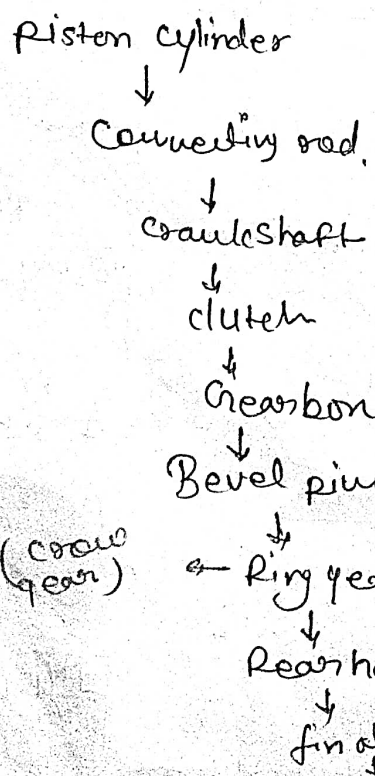 Piston cylinder
↓
Connecting rod.
↓
Crankshaft
↓
clutch
↓
Gearbox
↓
Bevel pin
↓
(crown gear) ← Ring gea
↓
Rear h
↓
final